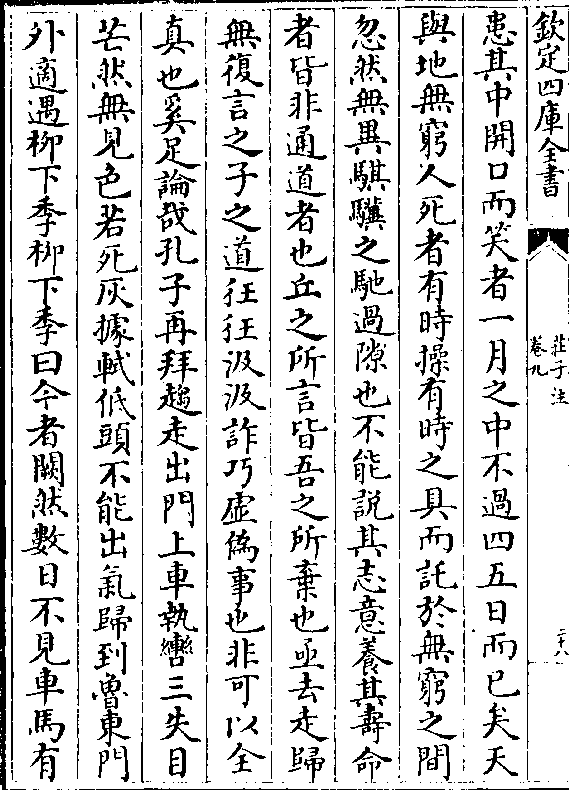 欽定四庫全書
莊子注
卷九
二十八
患其中開口而笑者一月之中不過四五日而已矣天
與地無窮人死者有時操有時之具而託於無窮之間
忽然無異騏驥之馳過隙也不能說其志意養其壽命
者皆非通道者也丘之所言皆吾之所棄也亟去走歸
無復言之子之道狂狂汲汲詐巧虛偽事也非可以全
真也奚足論哉孔子再拜趨走出門上車執轡三失目
芒然無見色若死灰據軾低頭不能出氣歸到魯東門
外適遇柳下季柳下季曰今者闕然數日不見車馬有